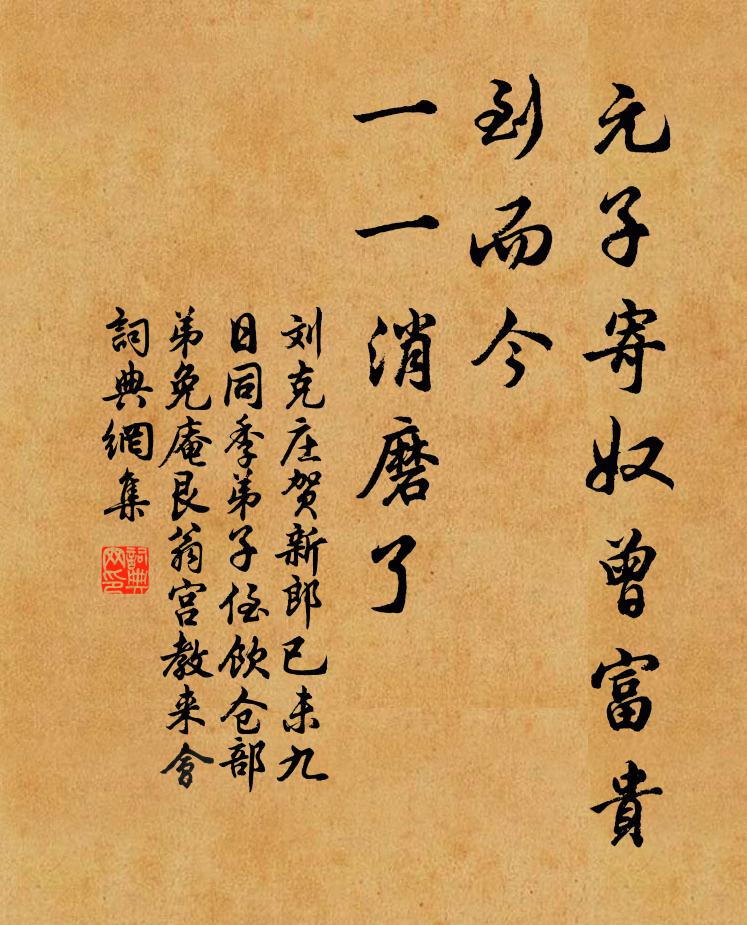 元子寄奴曾富貴
到而今
一一消磨了
刘克庄贺新郎已未九
日同季弟子侄饮仓部
弟免庵艮翁宫教来會
詞典網集
詞典
网印